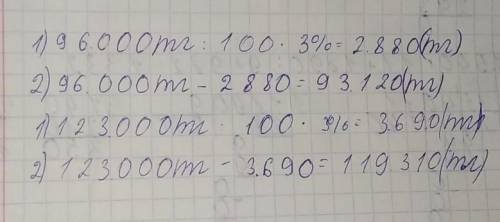 1) 96.000тг : 100 · 3% = 2.880(тг)
2) 96.000тг - 2880 = 93.120(тг)
1) 123.000тг · 100 · 3% = 3.690(тг)
2) 123.000тг - 3.690 = 119.310(тг)